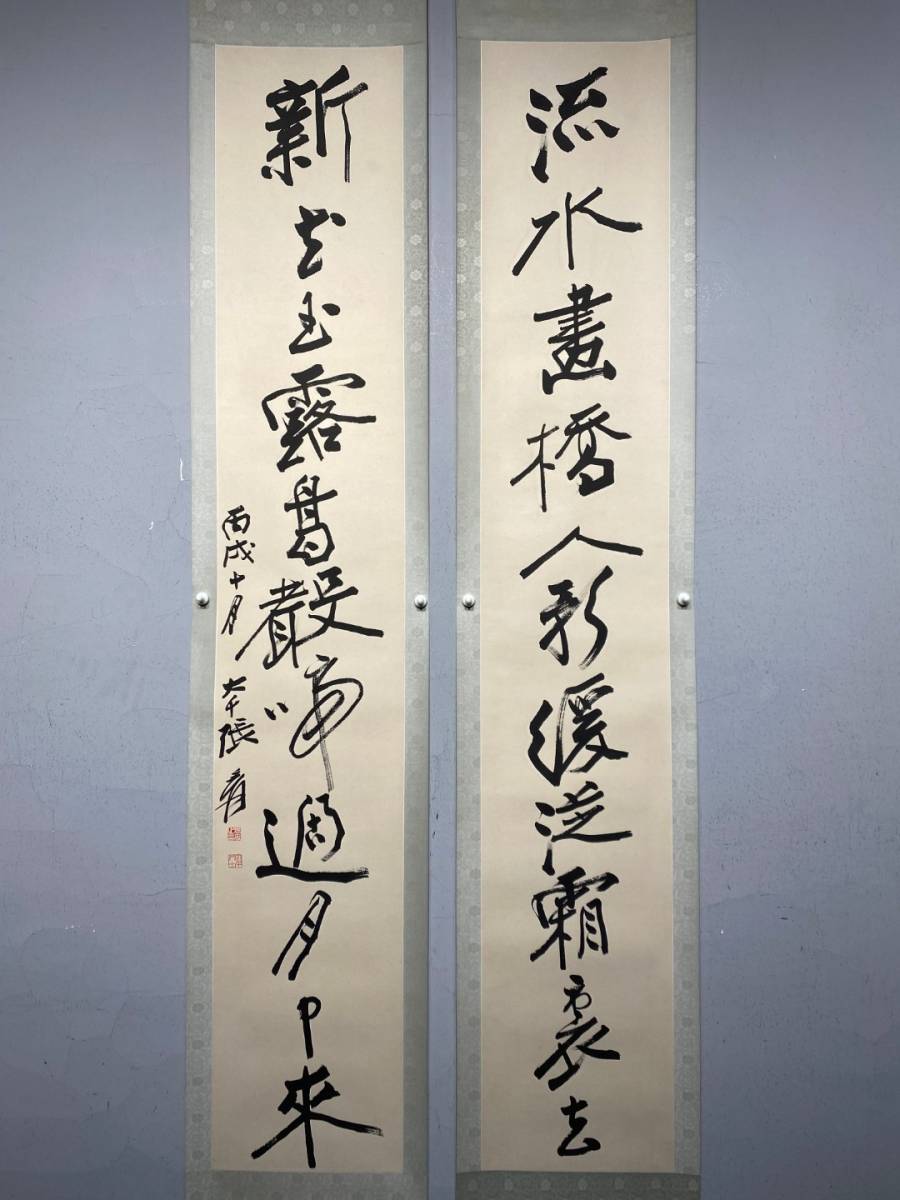 流水畫橋人影緩從霜裏去
新花玉露聲啼過月中來
丙戌十月 大千張爰